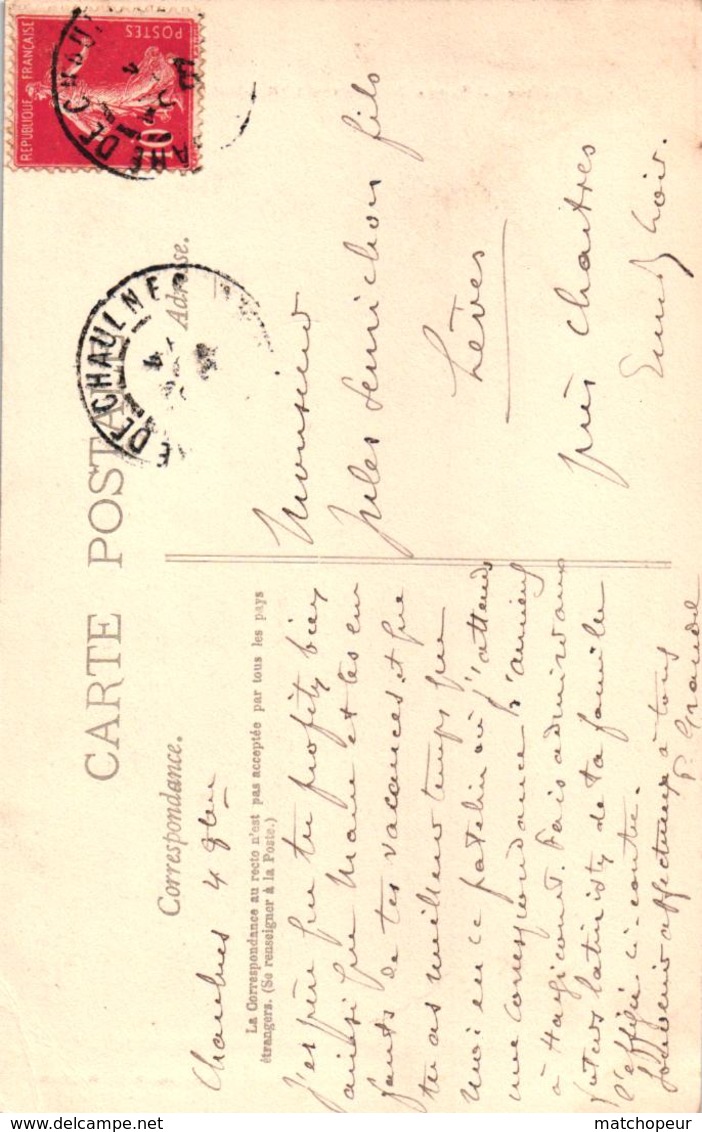 CARTE POSTALE
Correspondance.
Adresse.
La Correspondance au recto n'est pas acceptée par tous les pays
étrangers. (Se renseigner à la Poste.)
REPUBLIQUE FRANÇAISE
POSTES
10
GARE DE CHAU
DE CHAULNE
Chaulnes 4 8bre
J'espère que tu profites bien
ainsi que Marie et les en
fants de tes vacances et que
tu as meilleur temps que
moi en ce patelin où j'attends
une correspondance
à Hargicourt. Fais admirer aux
futurs latinistes de ta famille
l'effigie ci-contre.
Souvenir affectueux à tous
Monsieur
Jules Semichon fils
Lèves
près Chartres
Eure & Loir.
matchopeur